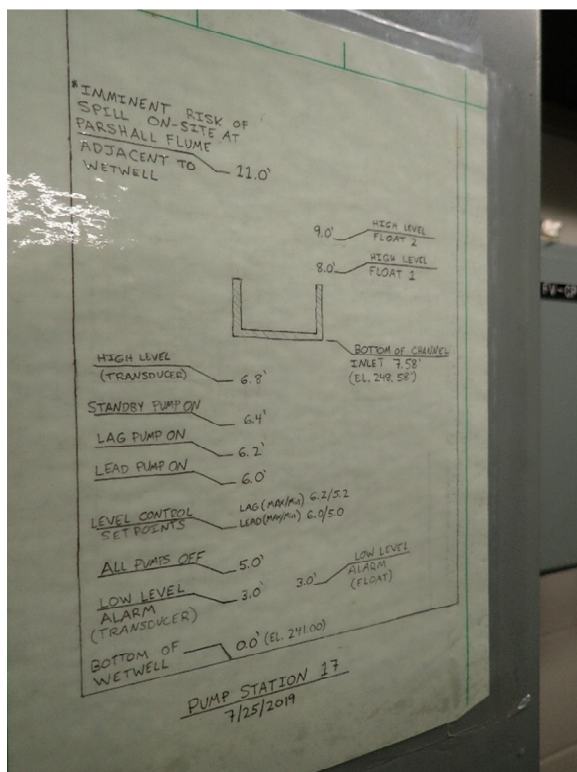 *IMMINENT RISK OF
SPILL ON-SITE AT
PARSHALL FLUME
ADJACENT TO
WETWELL
11.0'
9.0'
HIGH LEVEL
FLOAT 2
8.0'
HIGH LEVEL
FLOAT 1
BOTTOM OF CHANNEL
INLET 7.58'
(EL. 248.58')
HIGH LEVEL
(TRANSDUCER)
6.8'
STANDBY PUMP ON
6.4'
LAG PUMP ON
6.2'
LEAD PUMP ON
6.0'
LEVEL CONTROL
SETPOINTS
LAG (MAX/MIN) 6.2/5.2
LEAD (MAX/MIN) 6.0/5.0
ALL PUMPS OFF
5.0'
LOW LEVEL
ALARM
(TRANSDUCER)
3.0'
3.0'
LOW LEVEL
ALARM
(FLOAT)
BOTTOM OF
WETWELL
0.0' (EL. 241.00)
PUMP STATION 17
7/25/2019